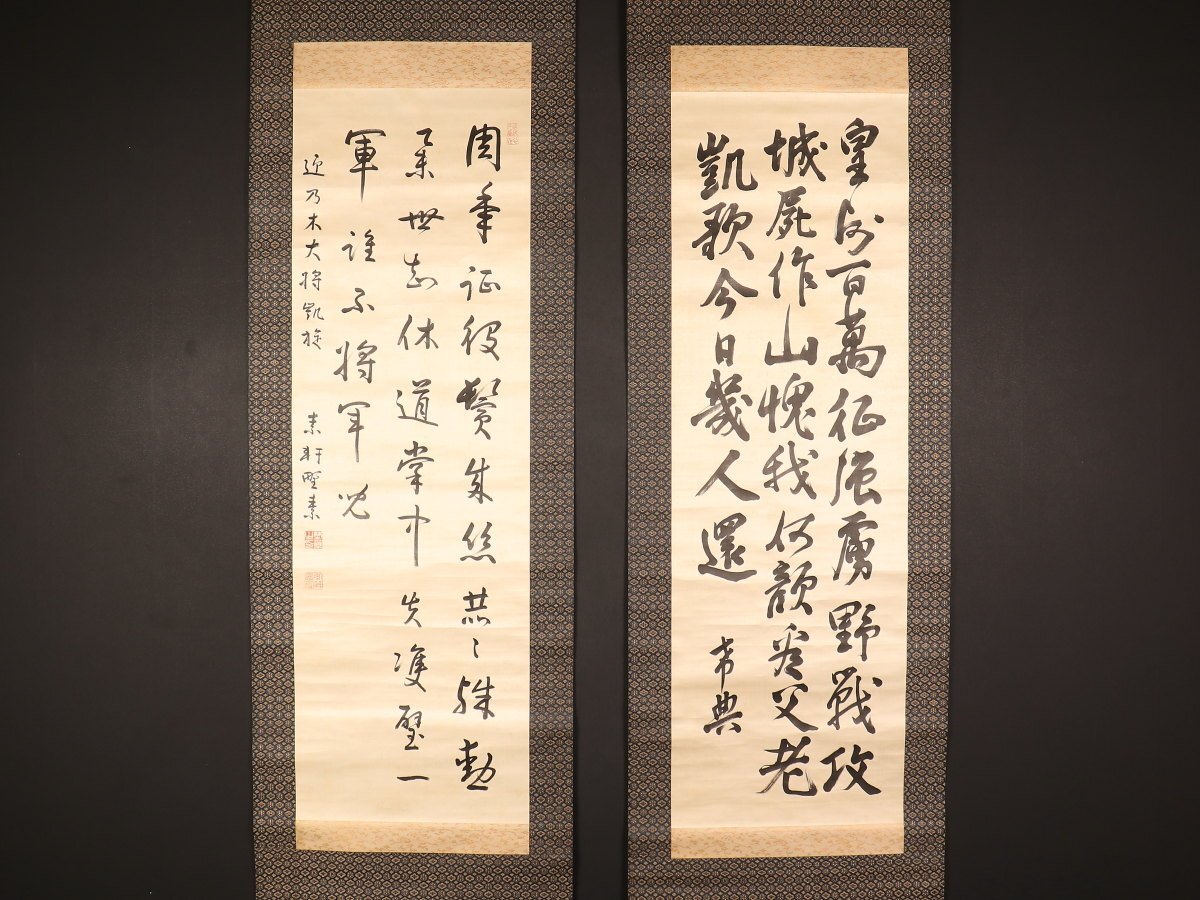 皇師百萬征強虜野戰攻
城屍作山愧我何顔看父老
凱歌今日幾人還 希典
周年征役鬢成絲赫々殊勲
萬世知休道掌中失雙璧一
軍誰不將軍兒
迎乃木大將凱旋 素軒野素